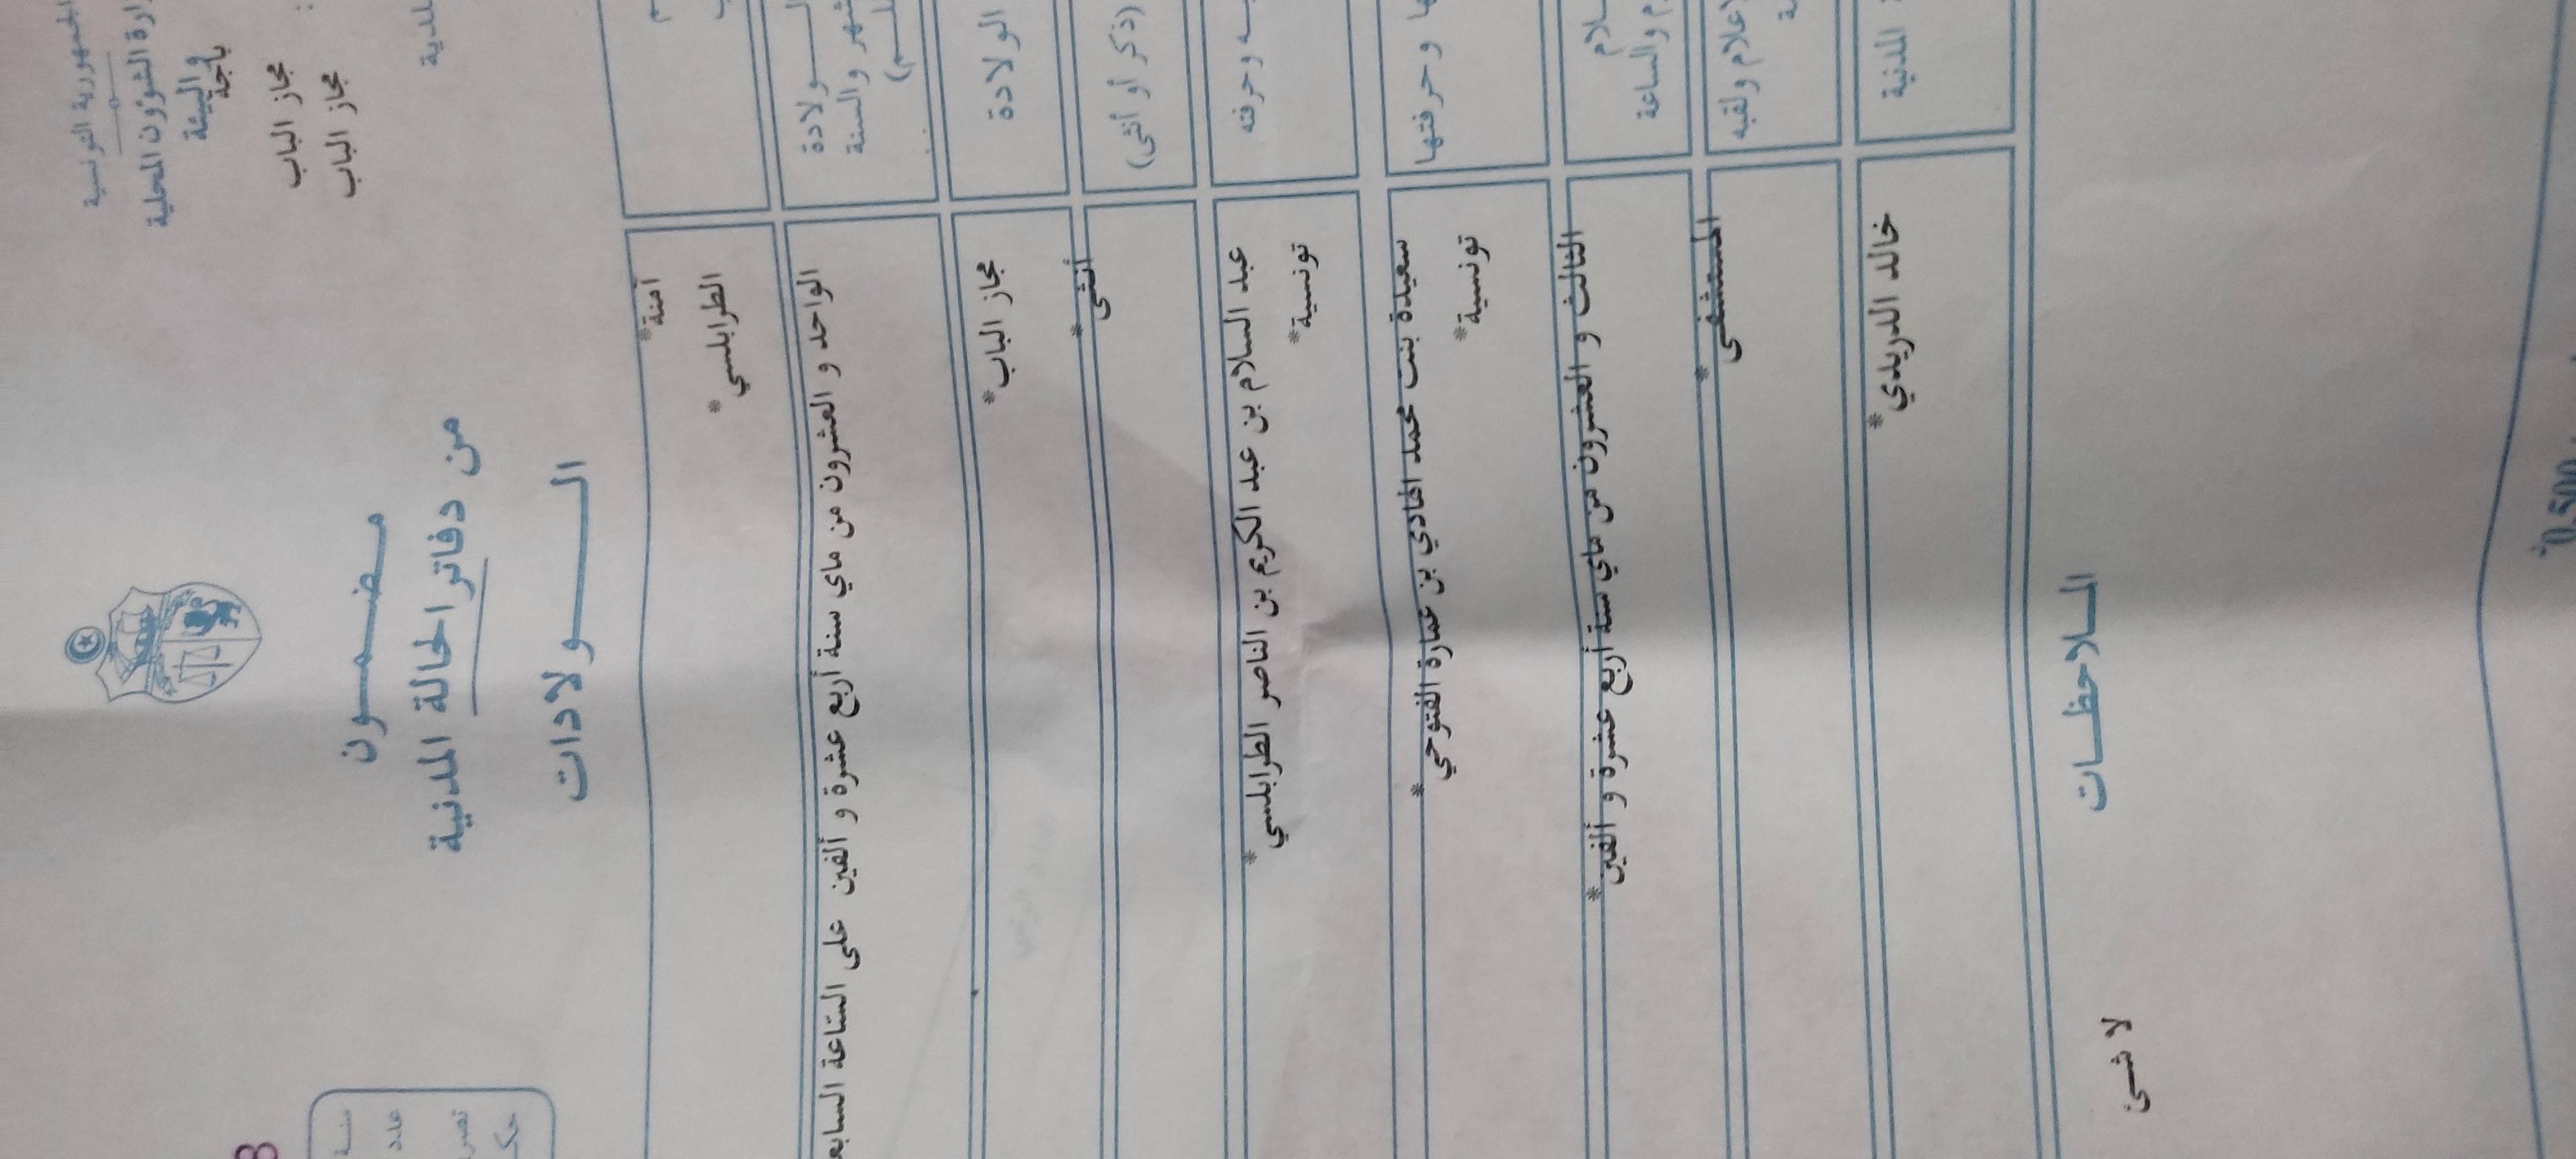 الجمهورية التونسية
وزارة الشؤون المحلية
والبيئة
باجة
مجاز الباب
مجاز الباب
مضمون
من دفاتر الحالة المدنية
الولادات
سنة
عدد
آمنة*
الطرابلسي*
الولادة
الشهر والسنة
الواحد و العشرون من ماي سنة أربع عشرة و ألفين على الساعة السابعة
الولادة
مجاز الباب*
(ذكر أو أنثى)
أنثى*
وحرفته
عبد السلام بن عبد الكريم بن الناصر الطرابلسي*
تونسية*
وحرفتها
سعيدة بنت محمد الهادي بن عمارة الفتوحي*
تونسية*
والساعة
الثالث و العشرون من ماي سنة أربع عشرة و ألفين*
الإعلام ولقبه
المستشفى*
المدنية
خالد الدريدي*
الملاحظات
لا شيء
0,500